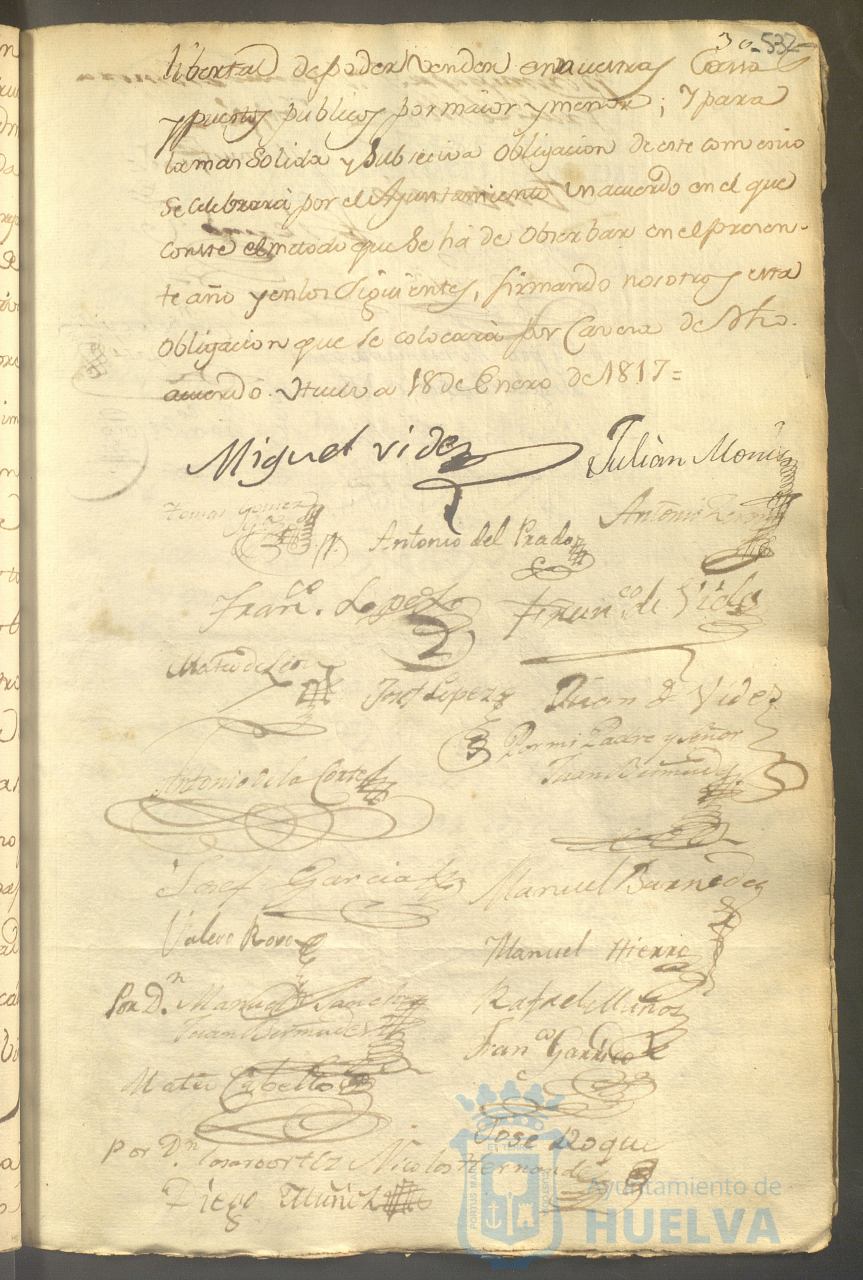 30 -532-
libertad de poder vender en nuestras Casas
y puestos publicos por maior y menor; y para
la mas Solida y Subseciva obligacion de este combenio
se Celebrará por el Ayuntamiento un acuerdo en el que
conste el metodo que Se há de Obserbar en el presen-
te año y en los Siguientes, firmando nosotros esta
Obligacion que se colocará por Cavera de dho.
acuerdo. Huelva 18 de Enero de 1817=
Miguel Videz Julián
Tomas Gomez Antonio
Antonio del Prado
Fran.co Lopez Fran.co de Vides
Mateo de Josef Lopez Juan de Videz
Por mi Padre y señor
Antonio de la Corte Juan Bermudez
Josef Garcia Manuel Barnedez
Valero Roxo Manuel Hierro
Por D.n Manuel Sanchez Rafael Muñoz
Juan Bermudez Fran.co Garrido
Mateo Cabello
Jose Roque
Por D.n Nicolas Hernandez
Diego Muñiz
Ayuntamiento de
HUELVA